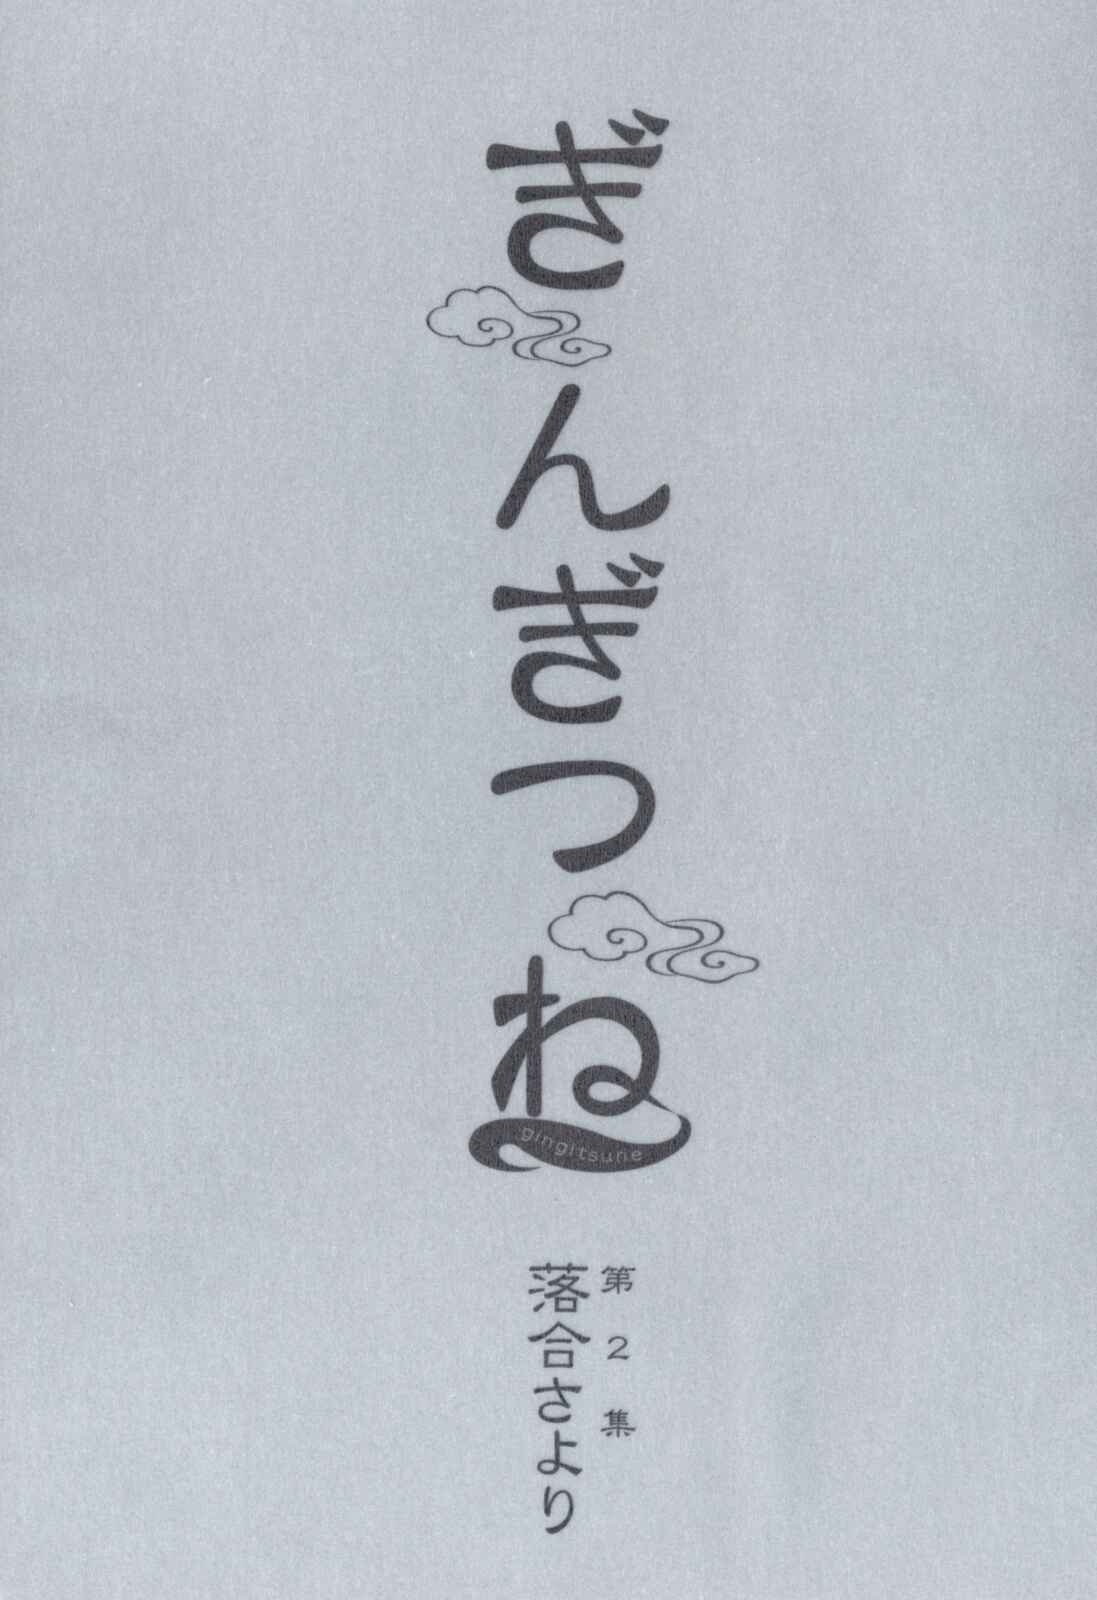 ぎんぎつね
gingitsune
第2集
落合さより